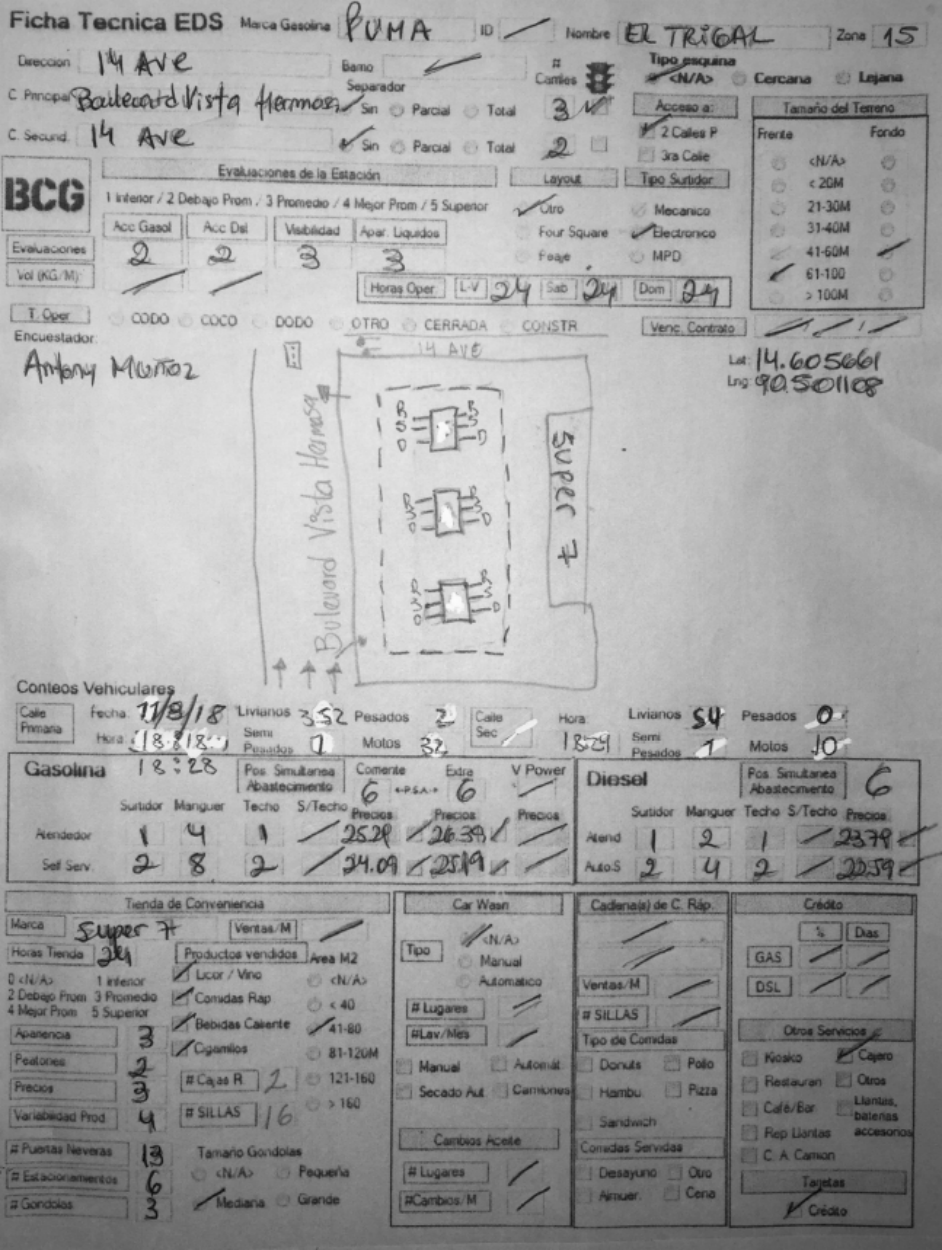 Ficha Tecnica EDS Marca Gasolina PUMA ID / Nombre EL TRIGAL Zona 15
Direccion 14 AVE Barrio / # Carriles Tipo esquina
<N/A> Cercana Lejana
C. Principal Boulecard Vista Hermosa Separador Sin Parcial Total 3 Acceso a: Tamaño del Terreno
C. Secund. 14 AVE Sin Parcial Total 2 2 Calles P Frente Fondo
3ra Calle <N/A>
BCG Evaluaciones de la Estación Layout Tipo Surtidor < 20M
1 Inferior / 2 Debajo Prom / 3 Promedio / 4 Mejor Prom / 5 Superior Otro Mecanico 21-30M
Acc Gasol Acc Dsl Visibilidad Apar. Liquidos Four Square Electronico 31-40M
Evaluaciones 2 2 3 3 Peaje MPD 41-60M
Vol (KG/M) / / Horas Oper L-V 24 Sab 24 Dom 24 61-100
> 100M
T. Oper CODO COCO DODO OTRO CERRADA CONSTR Venc. Contrato / / /
Encuestador:
Antony Muñoz
Lat: 14.605661
Lng: 90.501108
14 AVE
Bulevard Vista Hermosa
R S D R S D
R S D R S D
R S D R S D
Super 7
Conteos Vehiculares
Calle Primaria Fecha: 11/8/18 Livianos 352 Pesados 2 Calle Sec / Hora: Livianos 54 Pesados 0
Hora: 18:18 Semi Pesados 1 Motos 32 18:29 Semi Pesados 1 Motos 10
18:28
Gasolina Pos. Simultanea Abastecimiento Corriente 6 ←PSA→ Extra 6 V Power / Diesel Pos. Simultanea Abastecimiento 6
Surtidor Manguer Techo S/Techo Precios Precios Precios Surtidor Manguer Techo S/Techo Precios
Atendedor 1 4 1 / 25.29 / 26.39 / / Atend 1 2 1 / 23.79
Self Serv. 2 8 2 / 24.09 / 25.19 / / Auto.S 2 4 2 / 22.59
Tienda de Conveniencia Car Wash Cadena(s) de C. Ráp. Crédito
Marca Super 7 Ventas/M / Tipo <N/A> % Dias
Horas Tienda 24 Productos vendidos Area M2 Manual GAS / /
0 <N/A> 1 Inferior Licor / Vino <N/A> Automatico Ventas/M / DSL / /
2 Debajo Prom 3 Promedio Comidas Rap < 40 # Lugares / # SILLAS /
4 Mejor Prom 5 Superior Bebidas Caliente 41-80 #Lav/Mes / Tipo de Comidas Otros Servicios
Apariencia 3 Cigarrillos 81-120M Manual Automát Donuts Pollo Kiosko Cajero
Peatones 2 # Cajas R 2 121-160 Secado Aut Camiones Hambu Pizza Restauran Otros
Precios 3 > 160 Sandwich Café/Bar Llantas, baterias accesorios
Variabilidad Prod 4 # SILLAS 16 Cambios Aceite Comidas Servidas Rep Llantas
# Puertas Neveras 13 Tamaño Gondolas # Lugares / Desayuno Otro C. A. Camion
# Estacionamientos 6 <N/A> Pequeña #Cambios/M / Almuer. Cena Tarjetas
# Gondolas 3 Mediana Grande Crédito